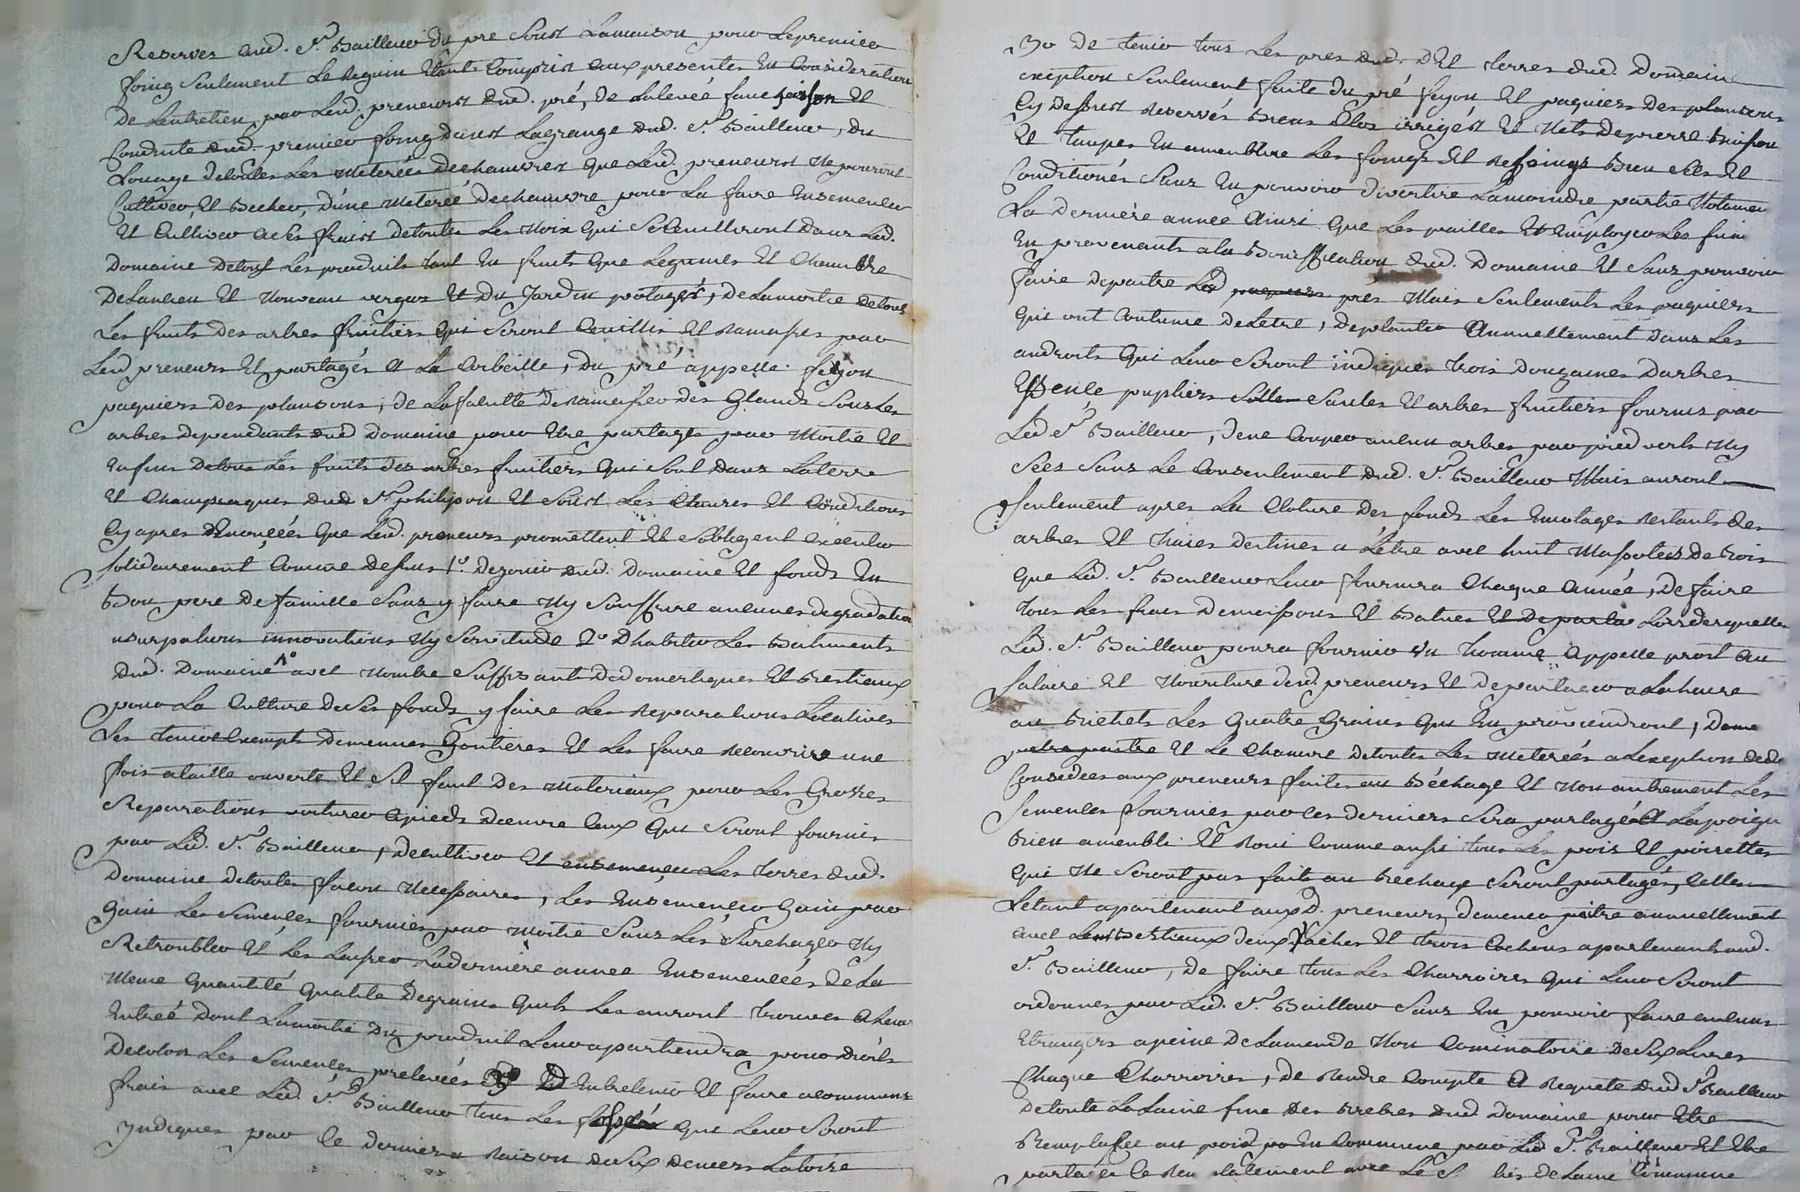 Reserves aud. Sr Bailleur du pre sous lamaison pour lepremier
foing seulement le reguin etant compris aux presentes en consideration
de lentretien par led. preneurs dud. pré, de lalevée fauchaison et
conduite dud. premier foing dans lagrange dud. Sr Bailleur, du
Louage detoutes les meterées dechanvres que led. preneurs ne pouront
Cultiver, et Becher, dune meterée dechanvre pour la faire ensemencer
et Cultiver ases frais detoutes les noix qui secuilliront dans led.
Domaine detous les produits tant en fruits que legumes et chanvre
delancien et nouveau verger et du jardin potager, de lamoitié detous
les fruits des arbres fruitiers qui seront cueillis et ramassés par
led preneurs et partagés a la Corbeille, du pré appellé feyon
paquiers des plansons, de lafaculté deramasser des glands sous les
arbres dependants dud domaine pour etre partagés par moitié et
enfin detous les fruits des arbres fruitiers qui sont dans laterre
et champ dud Sr philipon et sous les clauses et conditions
cy apres enoncées que led. preneurs promettent et sobligent executer
solidairement comme dessus 1o. dejouir dud. Domaine et fonds en
Bon pere defamille sans y faire ny souffrire aucunes degradations
usurpations innovations ny servitude 2o dhabiter les batiments
dud. Domaine avec nombre suffisant de domestiques et bestiaux
pour la culture deses fonds y faire les reparations locatives
les tenir exempts demenues goutieres et les faire recouvrire une
fois ataille ouverte et sil faut des materiaux pour les grosses
Reparations voiturer apieds doeuvre ceux qui seront fournis
par led. Sr Bailleur, decultiver et ensemencer les terres dud.
Domaine detoutes façon necessaires, les ensemencer gain par
gain les semences fournies par moitié sans les surcharger ny
Retroubler et les laisser laderniere année ensemencées de la
meme quantité qualité degrains quils les auront trouvés a leur
entrée dont lamoitié du produit leur apartiendra pour droits
decolon les semences prelevées 3o entretenir et faire acommuns
frais avec led. Sr Bailleur tous les fossés que leur seront
indiqués par ce dernier a raison desix deniers latoise
3o de tenir tous les pres dud. et terres dud. Domaine
exeption seulement faite du pré feyon et paquiers des plansons
cy dessus reservés bien clos irrigés et nets depierre buisson
et taupes en ameublire les foings et refoings bien secs et
Conditionés sans en pouvoir divertire lamoindre partie notament
la derniere année ainsi que les pailles et employer les fum
en provenants ala bonification dud. Domaine et sans pouvoir
faire depaitre led prés mais seulements les paquiers
qui ont coutume deletre, deplanter annuellement dans les
androits qui leur seront indiqués trois douzaines darbres
essence pupliers saules et arbres fruitiers fournis par
led Sr Bailleur, dene couper aucun arbres par pied verts ny
secs sans le consentement dud. Sr Bailleur mais auront
seulement apres la cloture des fonds les emotages restants des
arbres et haies destinés a letre avec huit de bois
que led. Sr Bailleur leur fournira chaque année, de faire
tous les frais demoissons et batues lorsdesquelles
led. Sr Bailleur poura fournir un homme appellé prost au
salaire et nouriture desd. preneurs et departager a
au bichets les quatre grains qui en proviendront,
et le chanvre detoutes les meterées alexeption dede
Consedées aux preneurs faites au béchage et non autrement les
semences fournies par ces derniers sera partagé a lapoigne
bien ameubli et roui comme aussi tous les pois et poisettes
qui ne seront pas faits au béchage seront partagés, celles
letant apartenant auxd. preneurs, demener paitre annuellement
avec leurs bestiaux deux vaches et trois cochons apartenant aud.
Sr Bailleur, de faire tous les charroires qui leur seront
ordonnés par led. Sr Bailleur sans en pouvoir faire aucuns
Etrangers apeine delamende non cominatoire desix livres
Chaque charroires, de rendre compte a requete dud Sr Bailleur
detoute la laine fine des brebis dud Domaine pour etre
Remplacée au poid par en commune par led Sr Bailleur et etre
partagée ce avec le S de laine commune